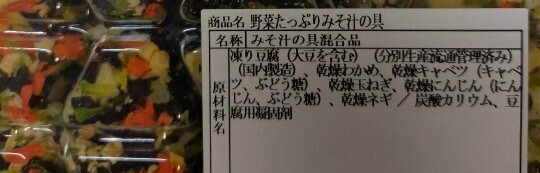 商品名 野菜たっぷりみそ汁の具
名称 みそ汁の具混合品
原材料名 凍り豆腐（大豆を含む）（分別生産流通管理済み）
（国内製造）、乾燥わかめ、乾燥キャベツ（キャベ
ツ、ぶどう糖）、乾燥玉ねぎ、乾燥にんじん（にん
じん、ぶどう糖）、乾燥ネギ／炭酸カリウム、豆
腐用凝固剤